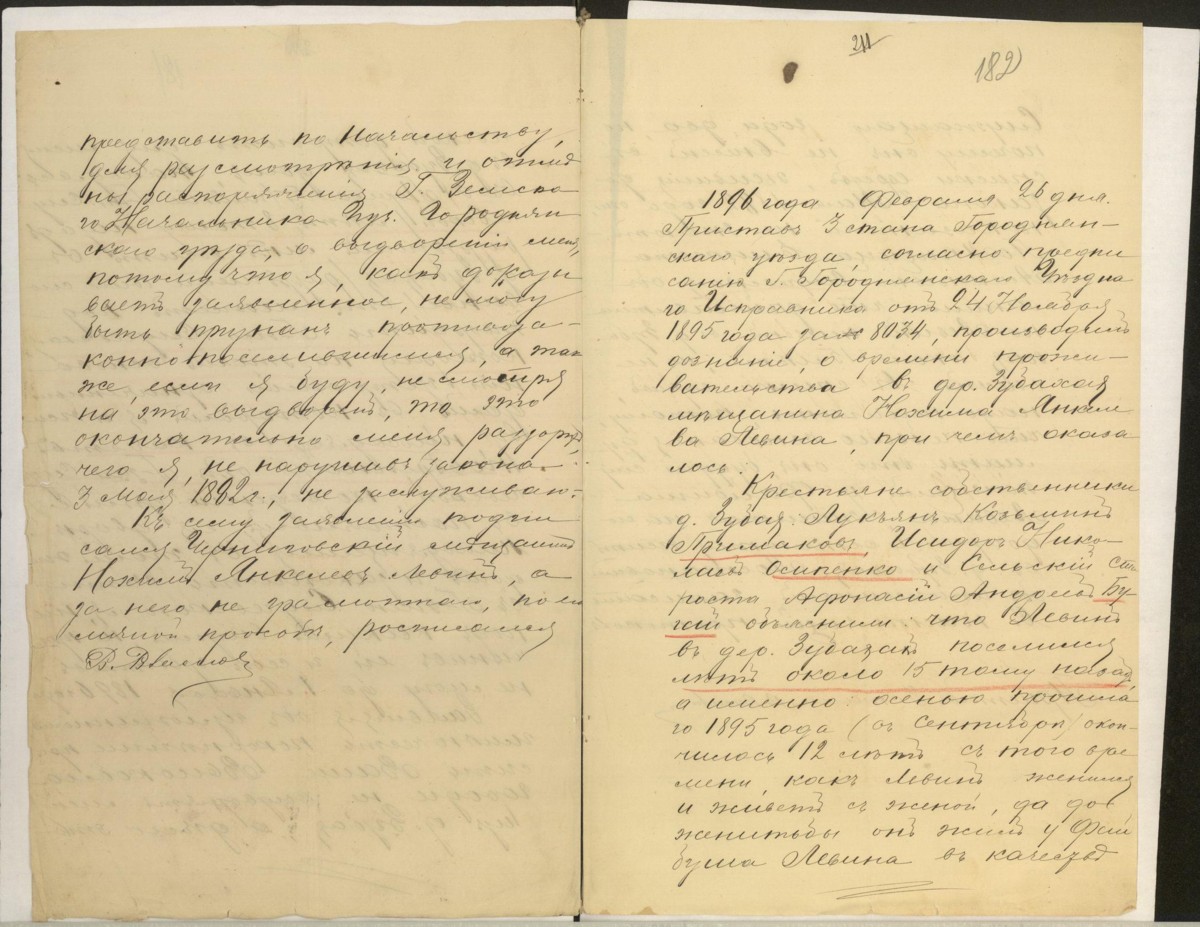 представить по Начальству,
для разсмотрѣнія и отмѣ
ны распоряженія Г. Земска
го Начальника Городнян
скаго уѣзда, о выдвореніи меня,
потому что я, какъ доказы
ваетъ заявленное, не могу
быть признанъ противоза-
конно поселившимся, а так
же, если я буду, не смотря
на это выдворенъ, то это
окончательно меня разорит,
чего я, не нарушивъ закона
3 Мая 1882 г., не заслуживаю.-
Къ сему заявленію подпи
сался Черниговскій мѣщанинъ
Нохимъ Янкелевъ Левинъ, а
за него не грамотнаго, по ли
личной просьбѣ, росписался
211
182
1896 года Февраля 26 дня.
Приставъ 3 стана Городнян-
скаго уѣзда, согласно предпи
санію Г. Городнянскаго Уѣздна
го Исправника отъ 24 Ноября
1895 года за № 8034, производилъ
дознаніе, о времени прожи-
вательства въ дер. Зубахахъ
мѣщанина Нохима Янкеле
ва Левина, при чемъ оказа
лось:
Крестьяне собственники
д. Зубах: Лукьянъ Козьминъ
Примаковъ, Исидоръ Нико-
лаевъ Осипенко и Сельскій Ста
роста Афонасій Андреевъ Бу-
гай объяснили: что Левинъ
въ дер. Зубахахъ поселился
лѣтъ около 15 тому назадъ,
а именно: осенью прошла
го 1895 года (въ Сентябрѣ) окон-
чилось 12 лѣтъ съ того вре
мени, какъ Левинъ женился
и живетъ съ женой, да до
женитьбы онъ жилъ у Фай
буша Левина въ качествѣ